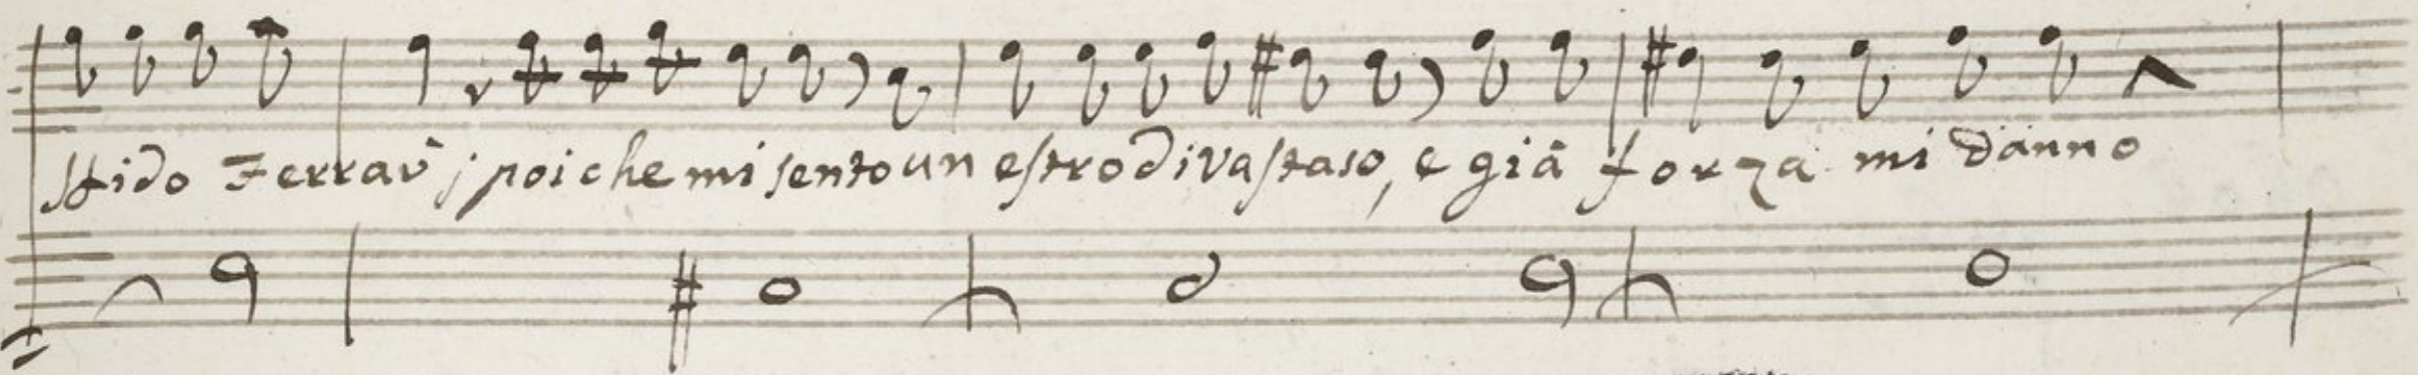 stido Ferraù; poiche mi sento un estro di vastaso, e già forza mi dànno